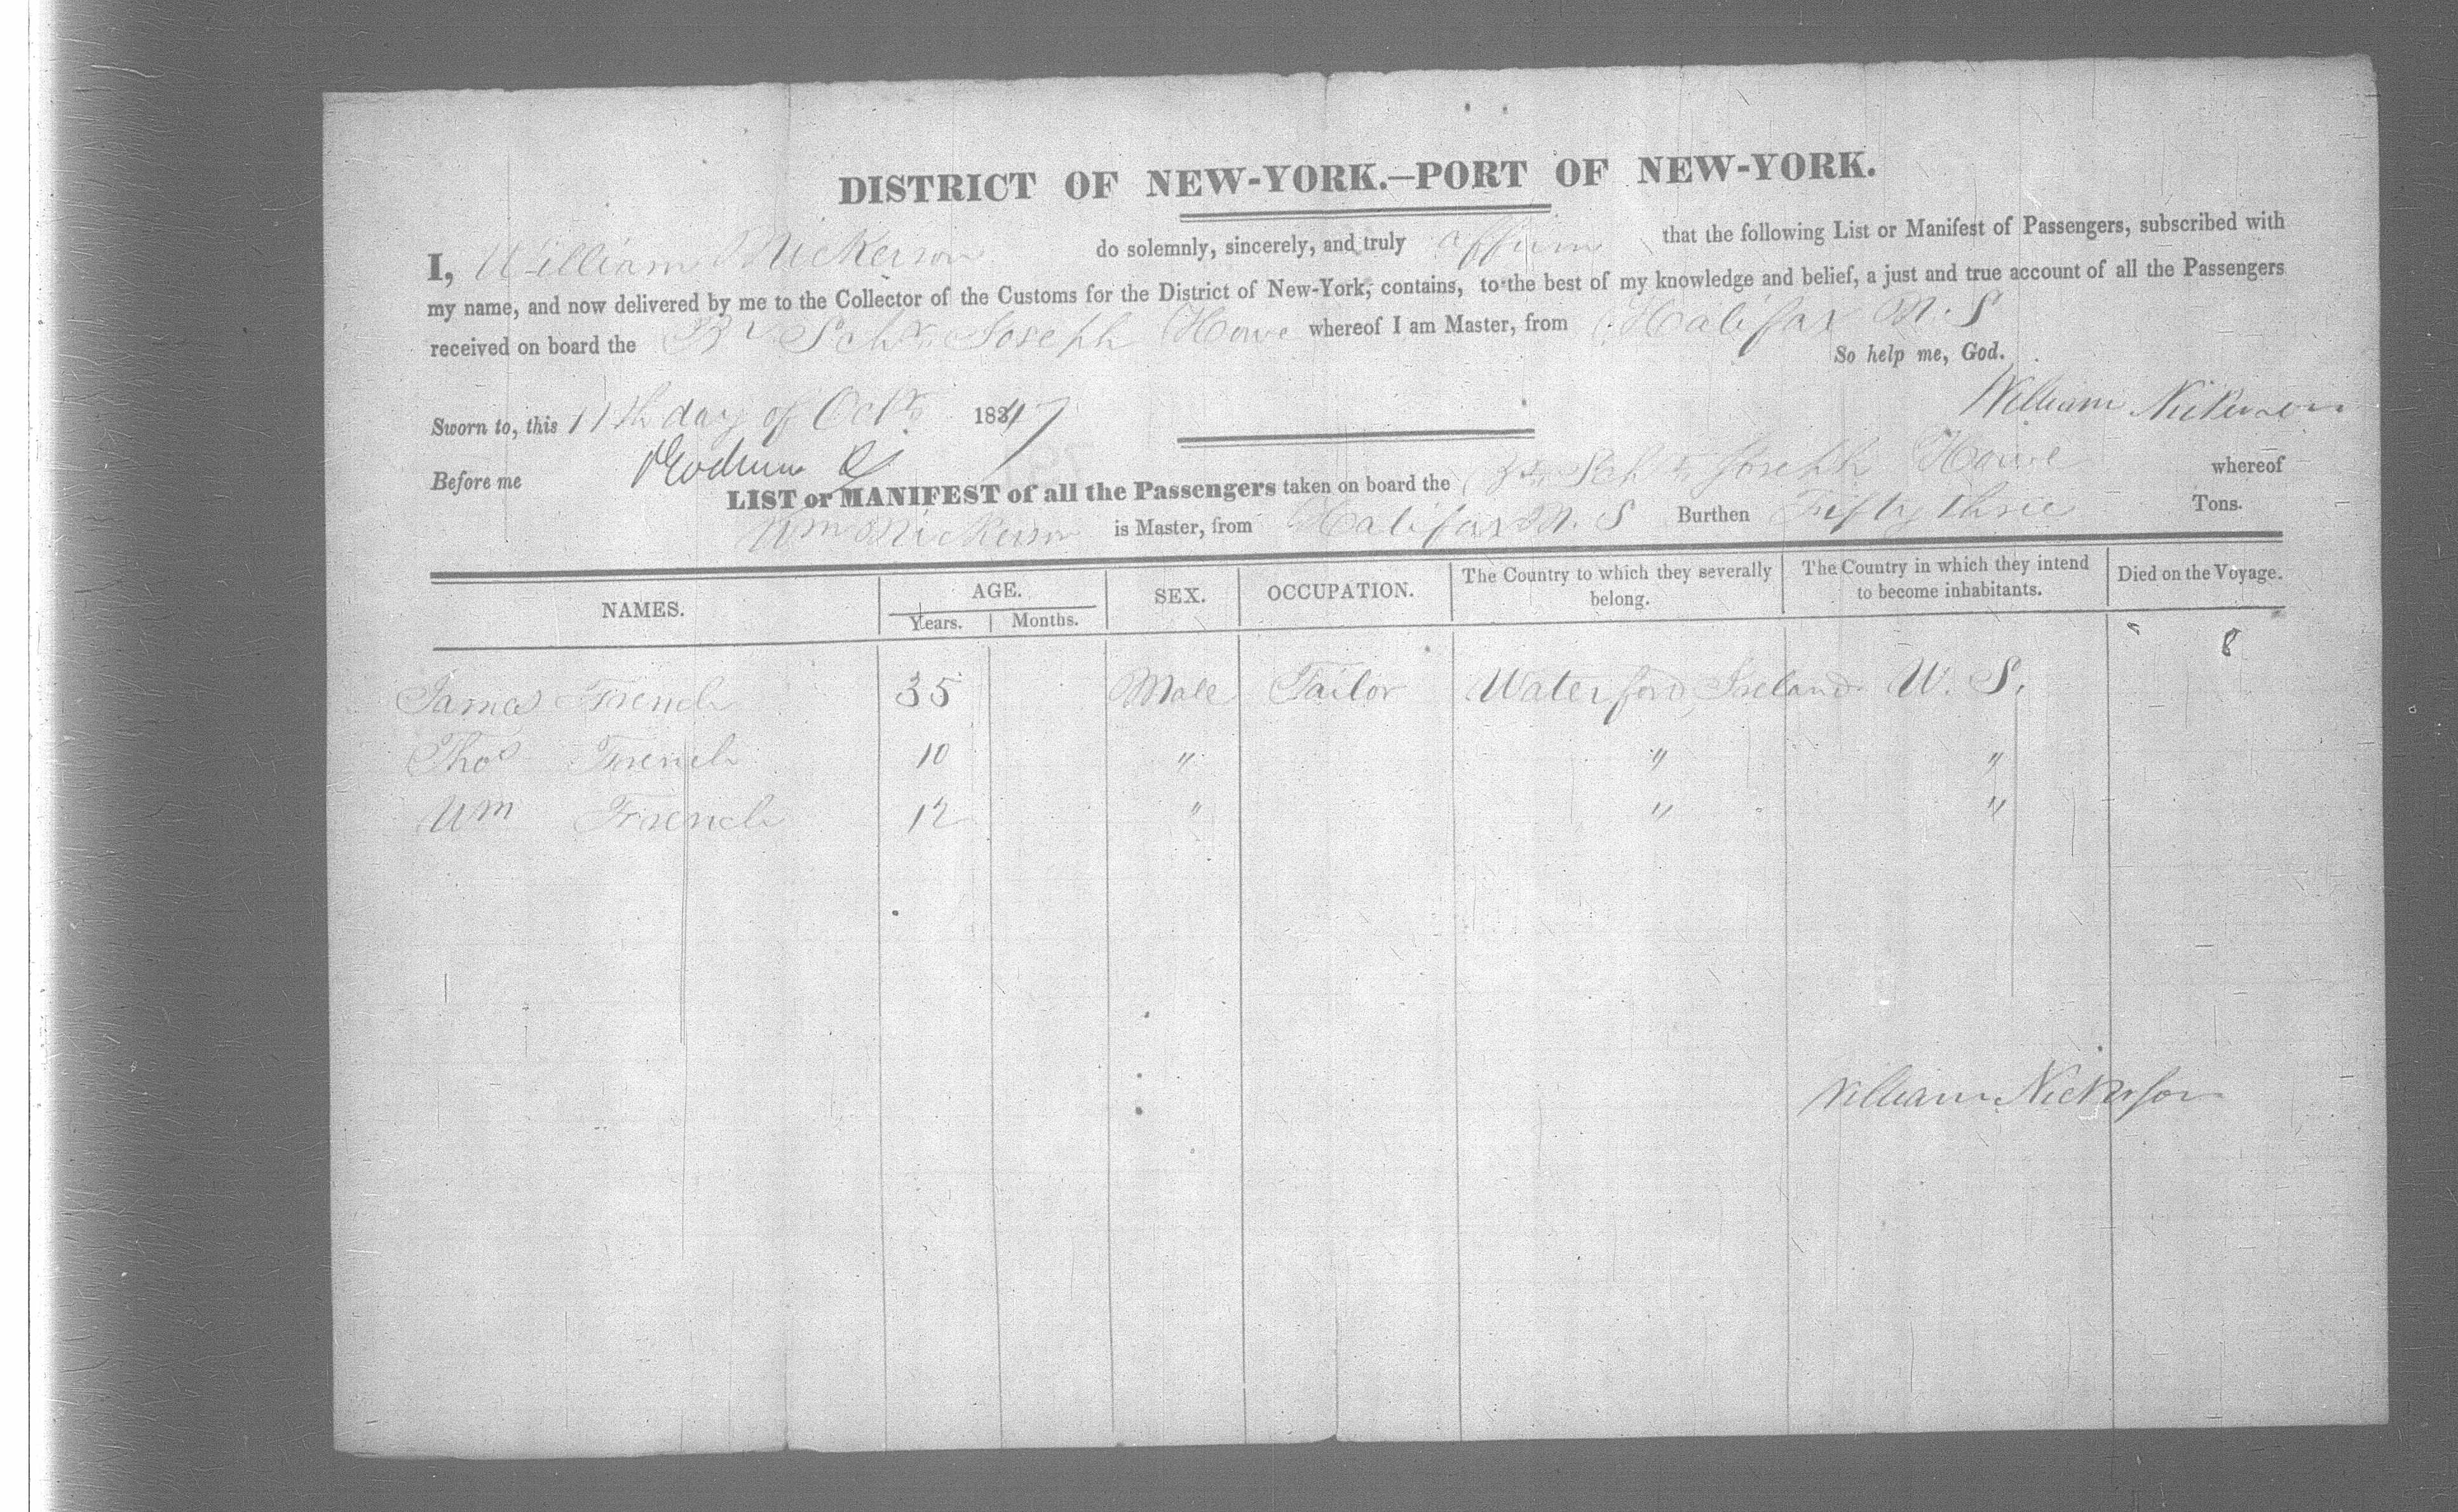 DISTRICT OF NEW-YORK.—PORT OF NEW-YORK.
I, William Nickerson do solemnly, sincerely, and truly affirm that the following List or Manifest of Passengers, subscribed with
my name, and now delivered by me to the Collector of the Customs for the District of New-York, contains, to the best of my knowledge and belief, a just and true account of all the Passengers
received on board the Br Schr Joseph Howe whereof I am Master, from Halifax N. S
So help me, God.
Sworn to, this 11th day of Octr 1847 William Nickerson
Before me
LIST or MANIFEST of all the Passengers taken on board the Br Schr Joseph Howe whereof
Wm Nickerson is Master, from Halifax N. S Burthen Fifty three Tons.
NAMES. AGE. Years. Months. SEX. OCCUPATION. The Country to which they severally belong. The Country in which they intend to become inhabitants. Died on the Voyage.
8
James French 35 Male Tailor Waterford, Ireland U. S.
Thos French 10 " " "
Wm French 12 " " "
William Nickerson